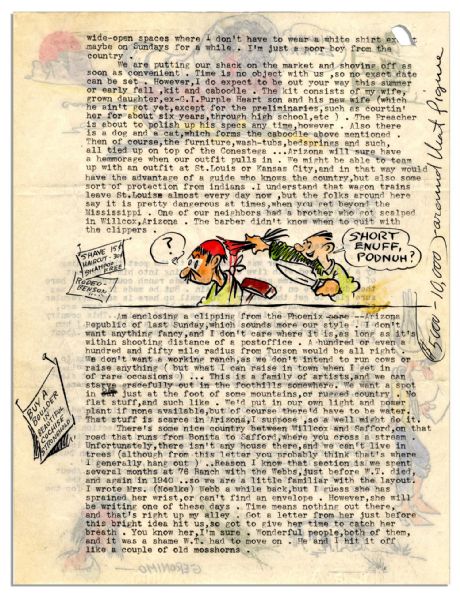 wide-open spaces where I don't have to wear a white shirt except
maybe on Sundays for a while . I'm just a poor boy from the
country .
We are putting our shack on the market and shoving off as
soon as convenient . Time is no object with us ,so no exact date
can be set . However,I do expect to be out your way this summer
or early fall ,kit and caboodle . The kit consists of my wife,
grown daughter,ex-G.I.Purple Heart son and his new wife (which
he ain't got yet,except for the preliminaries,such as courtin'
her for about six years,through high school,etc) . The Preacher
is about to polish up his specs any time,however . Also there
is a dog and a cat,which forms the caboodle above mentioned .
Then of course,the furniture,wash-tubs,bedsprings and such,
all tied up on top of the Conestoga ...Arizona will sure have
a hemmorage when our outfit pulls in . We might be able to team
up with an outfit at St.Louis or Kansas City,and in that way would
have the advantage of a guide who knows the country,but also some
sort of protection from indians . I understand that wagon trains
leave St.Louiss almost every day now ,but the folks around here
say it is pretty dangerous at times,when you get beyond the
Mississippi . One of our neighbors had a brother who got scalped
in Willcox,Arizona . The barber didn't know when to quit with
the clippers .
SHAVE 15¢
HAIRCUT-30¢
SHAMPOO
FREE
RODEO-
?
SHORT
ENUFF,
PODNUH?
Am enclosing a clipping from the Phoenix --Arizona
Republic of last Sunday,which sounds more our style . I don't
want anything fancy,and I don't care where it is,as long as it's
within shooting distance of a postoffice . A hundred or even a
hundred and fifty mile radius from Tucson would be all right.
We don't want a working ranch,as we don't intend to run cows or
raise anything ( but what I can raise in town when I get in
of rare occasions) ... This is a family of artists,and we can
starve gracefully out in the foothills somewhere. We want a spot
just at the foot of some mountains,or rugged country . No
flat stuff,and such like . We'd put in our own light and power
plant if none available,but of course there'd have to be water.
That stuff is scarce in Arizona,I suppose ,so a well might do it.
There's some nice country between Willcox and Safford,on that
road that runs from Bonita to Safford,where you cross a stream
Unfortunately,there isn't any house there,and we can't live in
trees (although from this letter you probably think that's where
I generally hang out) ..Reason I know that section is we spent
several months at 76 Ranch with the Webbs,just before W.T. died,
and again in 1940 ..so we are a little familiar with the layout.
I wrote Mrs. (Noelke) Webb a while back,but I guess she has
sprained her wrist,or can't find an envelope . However,she will
be writing one of these days . Time means nothing out there,
and that's right up my alley . Got a letter from her just before
this bright idea hit us,so got to give her time to catch her
breath . You know her,I'm sure . Wonderful people,both of them,
and it was a shame W.T. had to move on . He and I hit it off
like a couple of old mosshorns .
BUY A
10,000
around that figure
GERONIMO